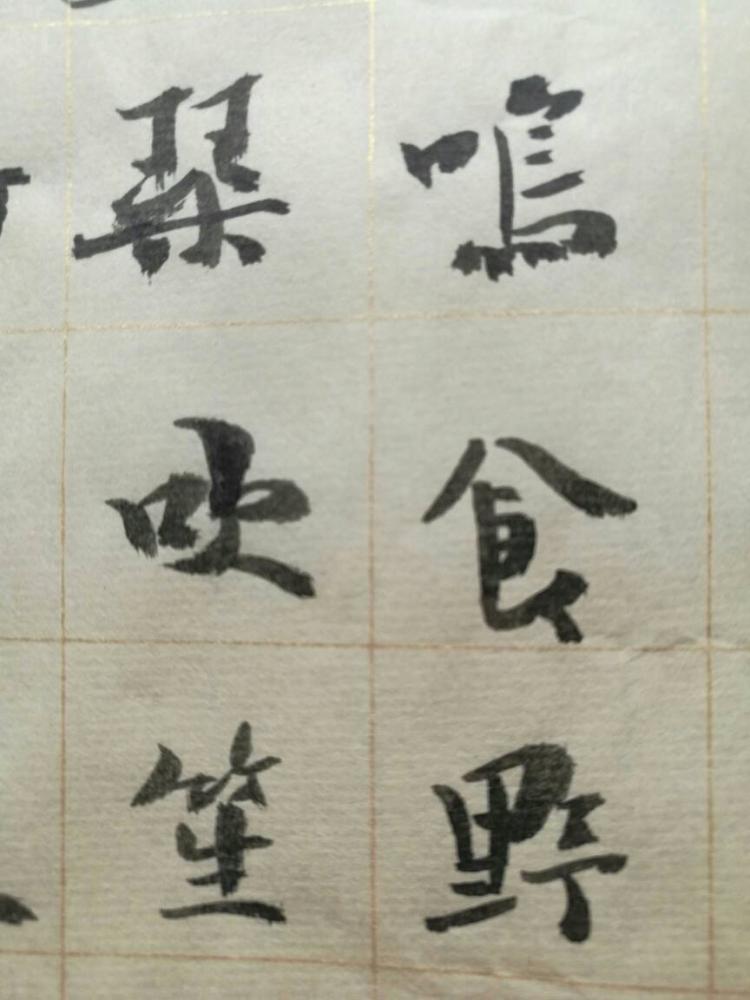 鳴食野
瑟吹笙